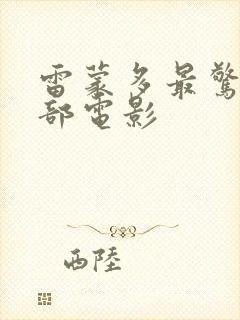 雷蒙多最驚
部電影
西陸